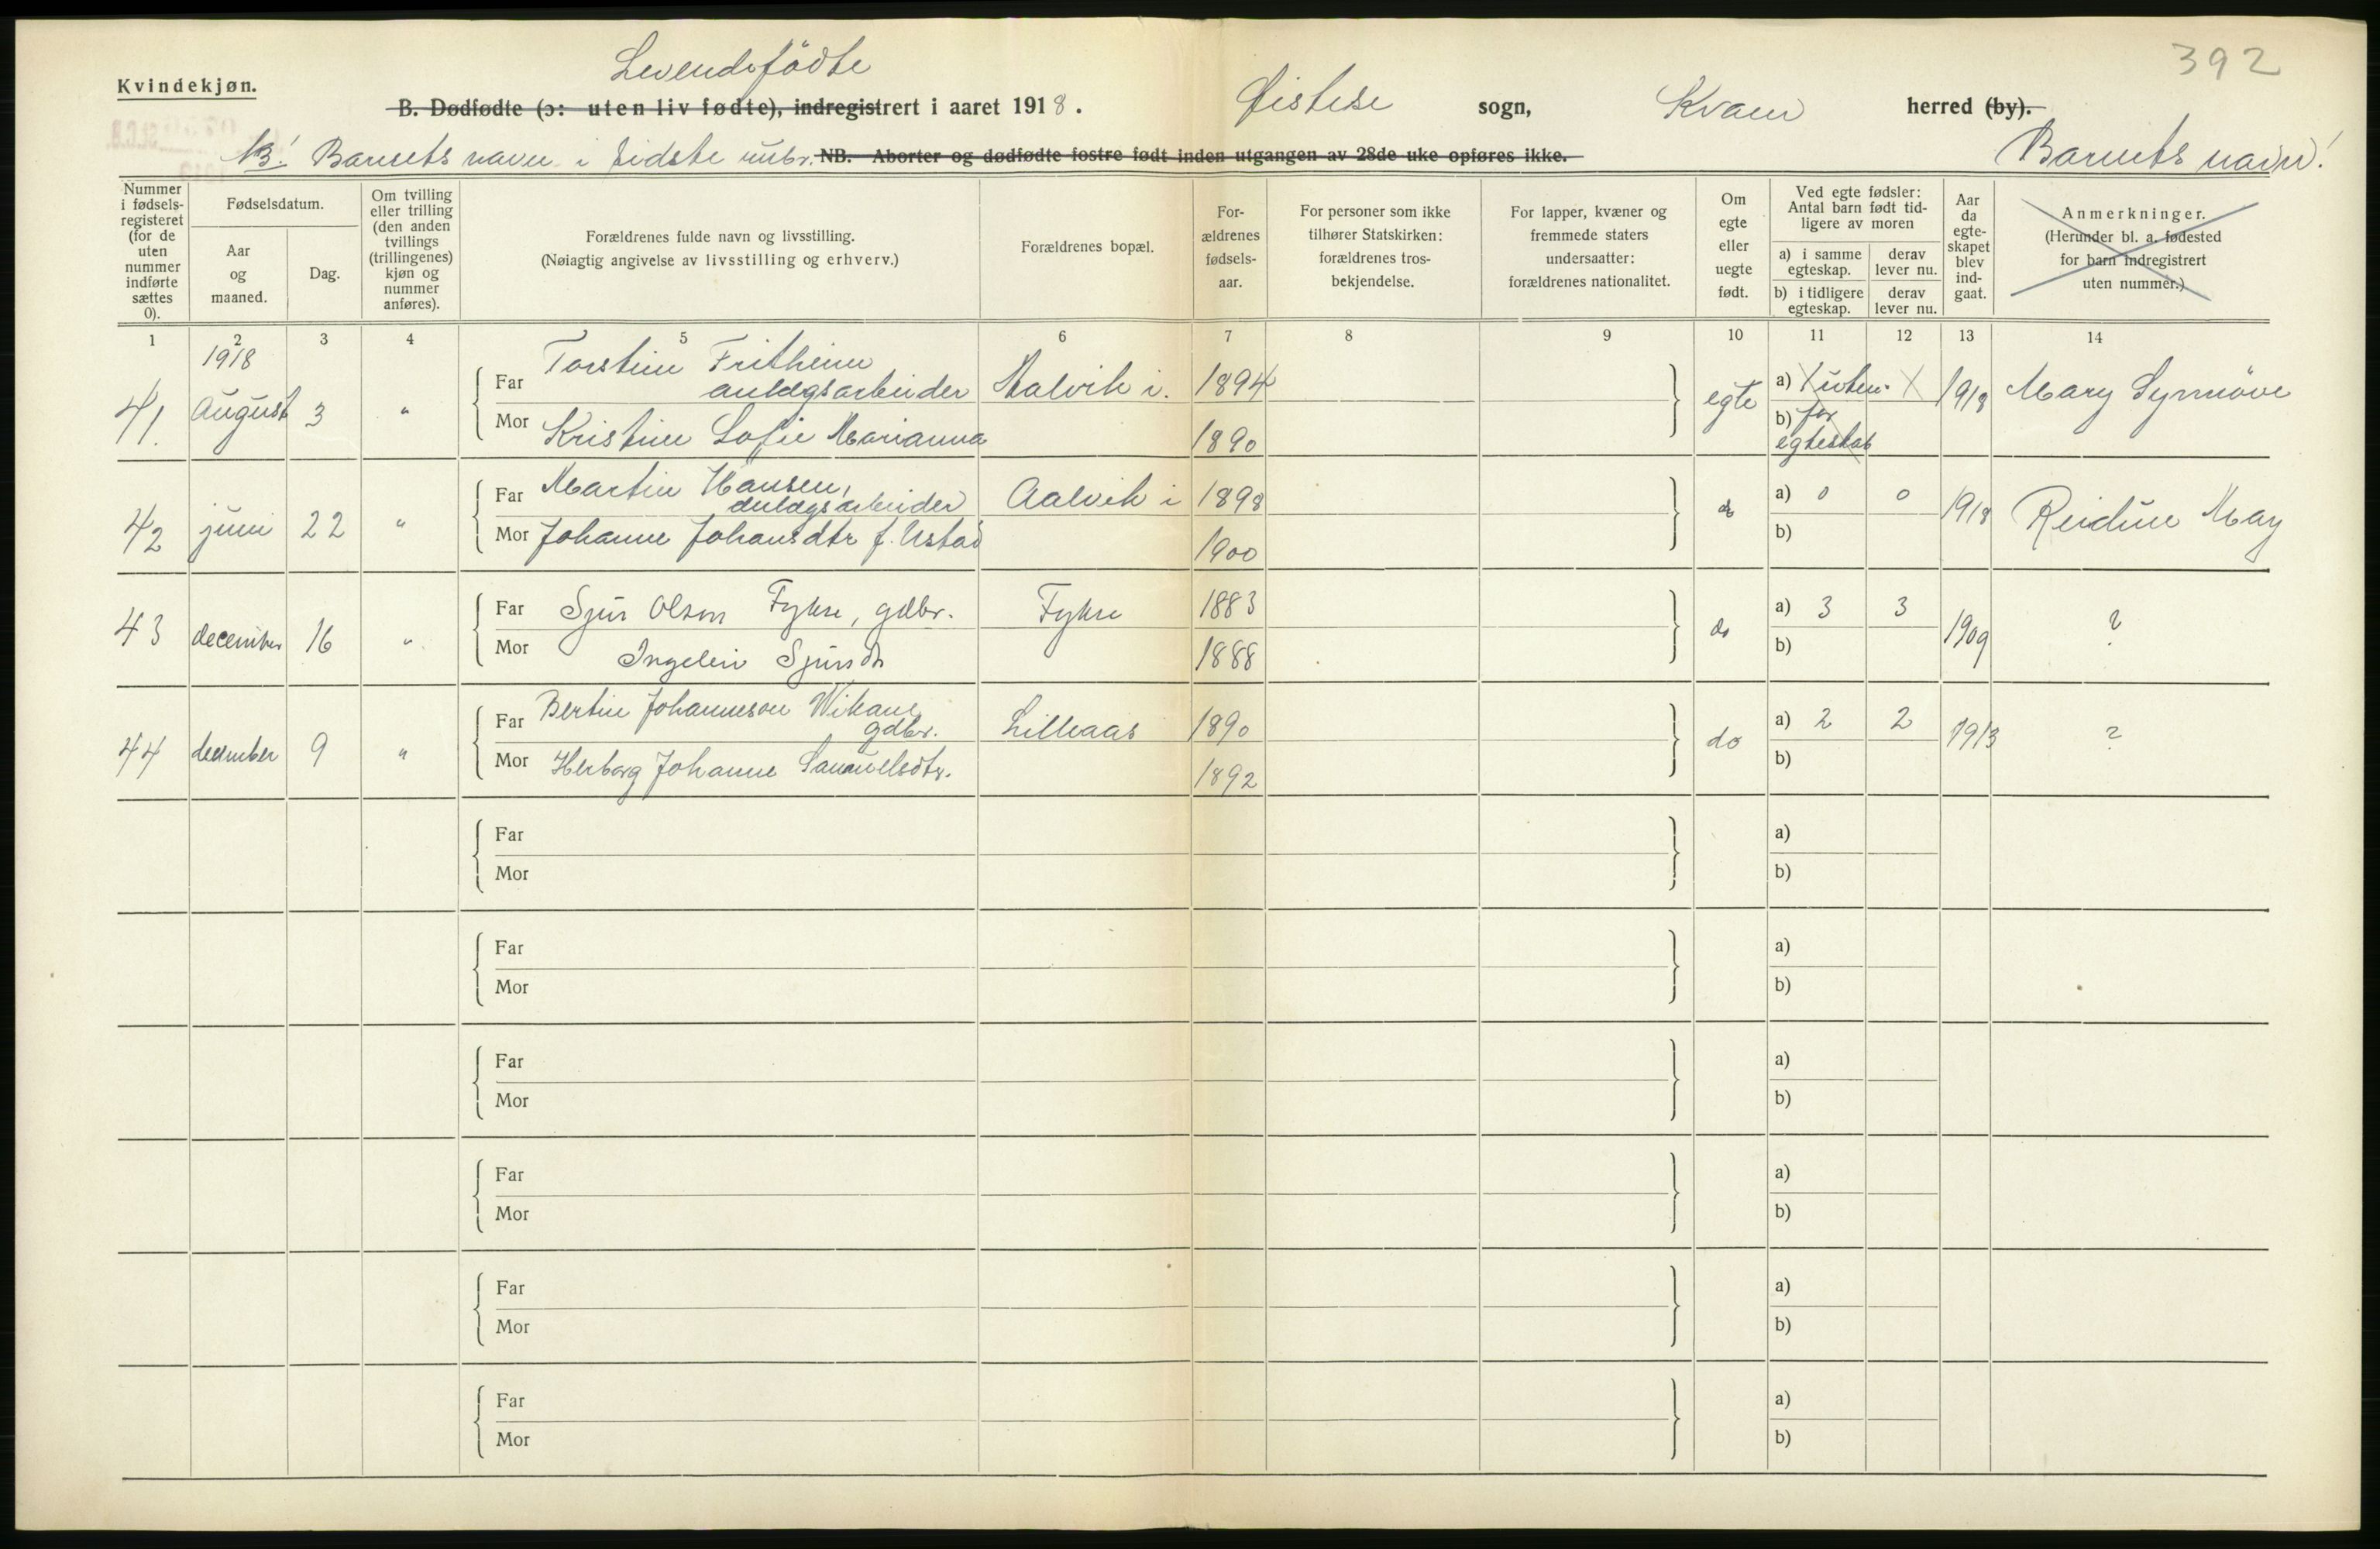 392
Kvindekjøn.
Levendefödte
B. Dødfødte (ɔ: uten liv fødte), indregistrert i aaret 1918. Øistese sogn, Kvam herred (by).
NB! Barnets navn i sidste rubr. NB. Aborter og dødfødte fostre født inden utgangen av 28de uke opføres ikke. Barnets navn!
Nummer i fødsels-registeret (for de uten nummer indførte sættes 0).
Fødselsdatum.
Aar og maaned.
Dag.
Om tvilling eller trilling (den anden tvillings (trillingenes) kjøn og nummer anføres).
Forældrenes fulde navn og livsstilling.
(Nøiagtig angivelse av livsstilling og erhverv.)
Forældrenes bopæl.
For-ældrenes fødsels-aar.
For personer som ikke tilhører Statskirken: forældrenes tros-bekjendelse.
For lapper, kvæner og fremmede staters undersaatter: forældrenes nationalitet.
Om egte eller uegte født.
Ved egte fødsler: Antal barn født tid-ligere av moren
a) i samme egteskap. derav lever nu.
b) i tidligere egteskap. derav lever nu.
Aar da egte-skapet blev ind-gaat.
Anmerkninger.
(Herunder bl. a. fødested for barn indregistrert uten nummer.)
1 2 3 4 5 6 7 8 9 10 11 12 13 14
1918
41. August 3 " Far Torstein Fritheim anlægsarbeider Aalvik i. 1894 egte a) 1 uten X 1918 Mary Synnöve
Mor Kristine Sofie Marianna 1890 b) for egteskab
42 juni 22 " Far Martin Hansen, anlægsarbeider Aalvik i 1898 do a) 0 0 1918 Reidun May
Mor Johanne Johansdtr f. Ustad 1900 b)
43 december 16 " Far Sjur Olson Fykse, gdbr. Fykse 1883 do a) 3 3 1909 ?
Mor Ingeleiv Sjursdtr 1888 b)
44 december 9 " Far Bertin Johanneson Wikane gdbr. Lilleaas 1890 do a) 2 2 1913 ?
Mor Herborg Johanne Samuelsdtr. 1892 b)
Far a)
Mor b)
Far a)
Mor b)
Far a)
Mor b)
Far a)
Mor b)
Far a)
Mor b)
Far a)
Mor b)